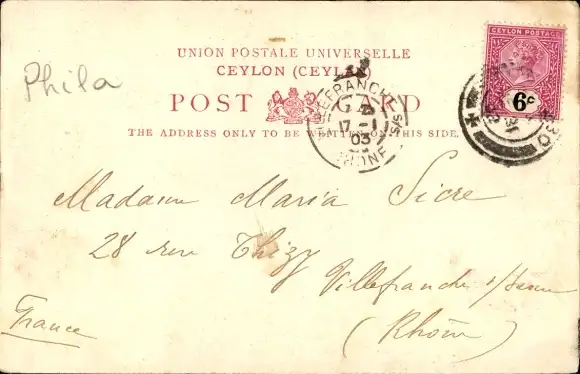 UNION POSTALE UNIVERSELLE
CEYLON (CEYLAN)
POST CARD
THE ADDRESS ONLY TO BE WRITTEN ON THIS SIDE.
CEYLON POSTAGE
6c
Phila
VILLEFRANCHE S/S
17 - 1
03
RHONE
Madame Maria Sicre
28 rue Thizy
Villefranche s/Saone
(Rhône)
France